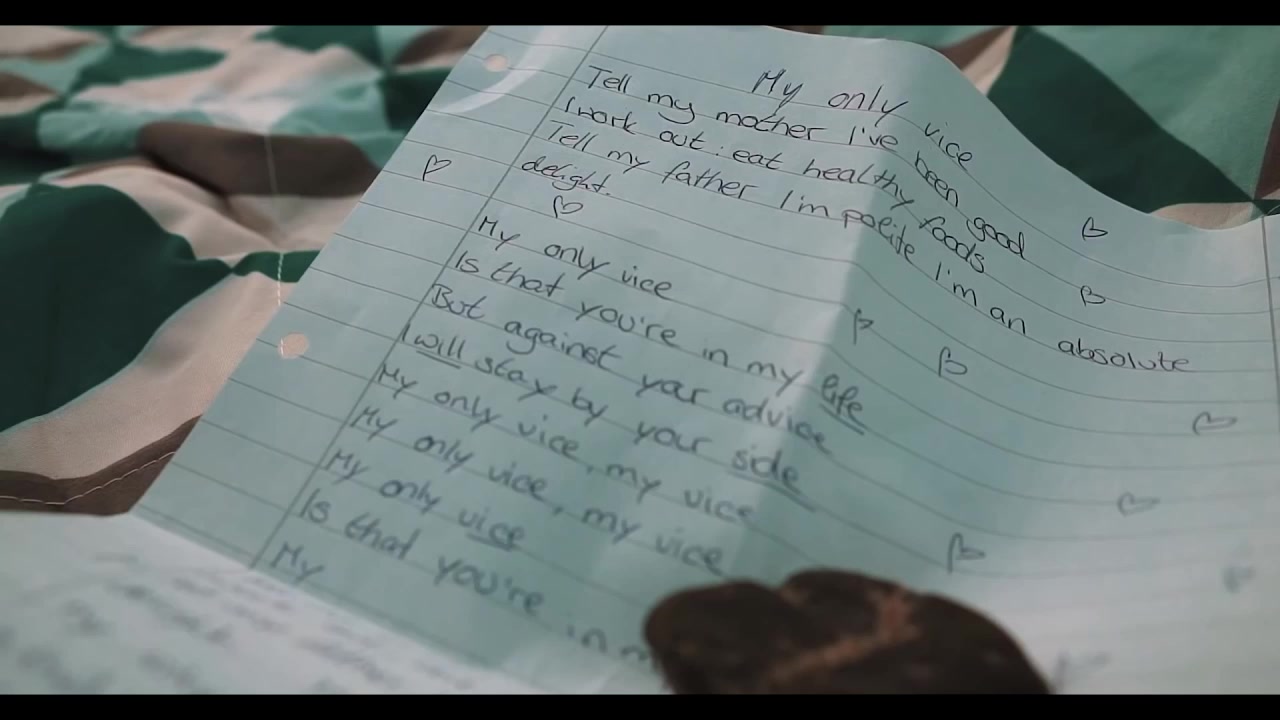 My only vice
Tell my mother I've been good
I work out : eat healthy foods
Tell my father I'm polite I'm an absolute
delight.
My only vice
Is that you're in my life
But against your advice
I will stay by your side
My only vice, my vice
My only vice, my vice
My only vice
Is that you're in
My